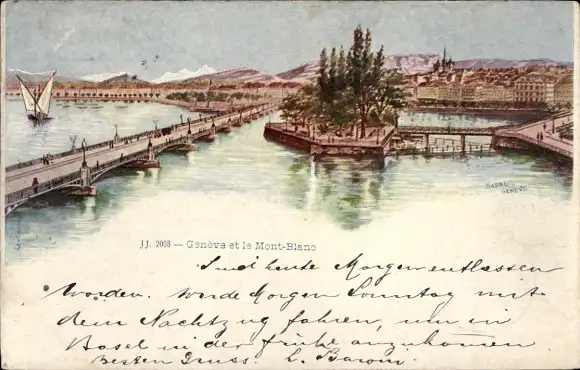 SAPAG
GENÈVE
JJ. 2098 — Genève et le Mont-Blanc
heute Morgen entlassen
worden. werde Morgen Sonntag mit
dem Nachtzug fahren, um in
Basel in der frühe anzukommen
Besten Gruss.